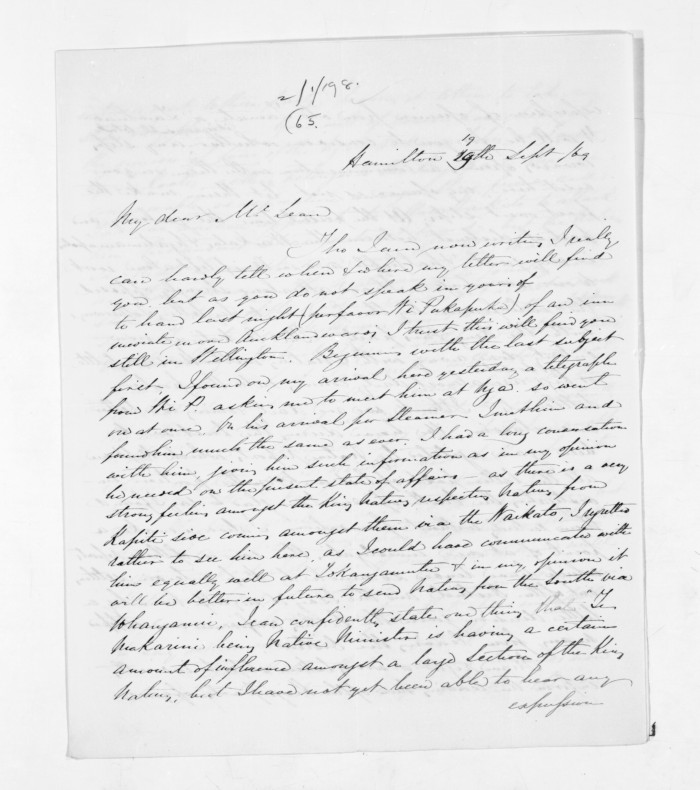 2/1/198.
(65.
Hamilton 19th Sept /69
My dear McLean
Tho I am now writing, I really
can hardly tell when & where my letter will find
you, but as you do not speak in yours of
to hand last night (per favor Wi Pukapuka) of an im
mediate move Aucklandwards, I trust this will find you
still in Wellington. Beginning with the last subject
first. I found on my arrival here yesterday a telegraph
from Wi P. asking me to meet him at Nga. so went
on at once. On his arrival per Steamer I met him and
found him much the same as ever. I had a long conversation
with him, giving him such information as in my opinion
he needed on the present state of affairs - as there is a very
strong feeling amongst the King Natives respecting Natives from
Kapiti side coming amongst them via the Waikato, I regretted
rather to see him here, as I could have communicated with
him equally well at Tokangamutu & in my opinion it
will be better in future to send Natives from the South via
Whanganui, I can confidently state one thing that Te
Makarini being Native Minister is having a certain
amount of influence amongst a large section of the King
Natives, but I have not yet been able to hear any
expression